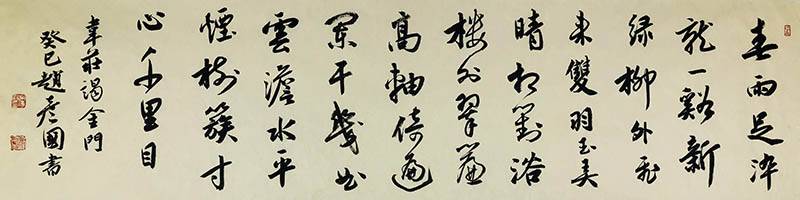 春雨足染
就一谿新
綠柳外飛
來雙羽玉弄
晴相對浴
樓外翠簾
高軸倚遍
闌干幾曲
雲澹水平
煙樹簇寸
心千里目
韋莊謁金門
癸巳趙彥國書